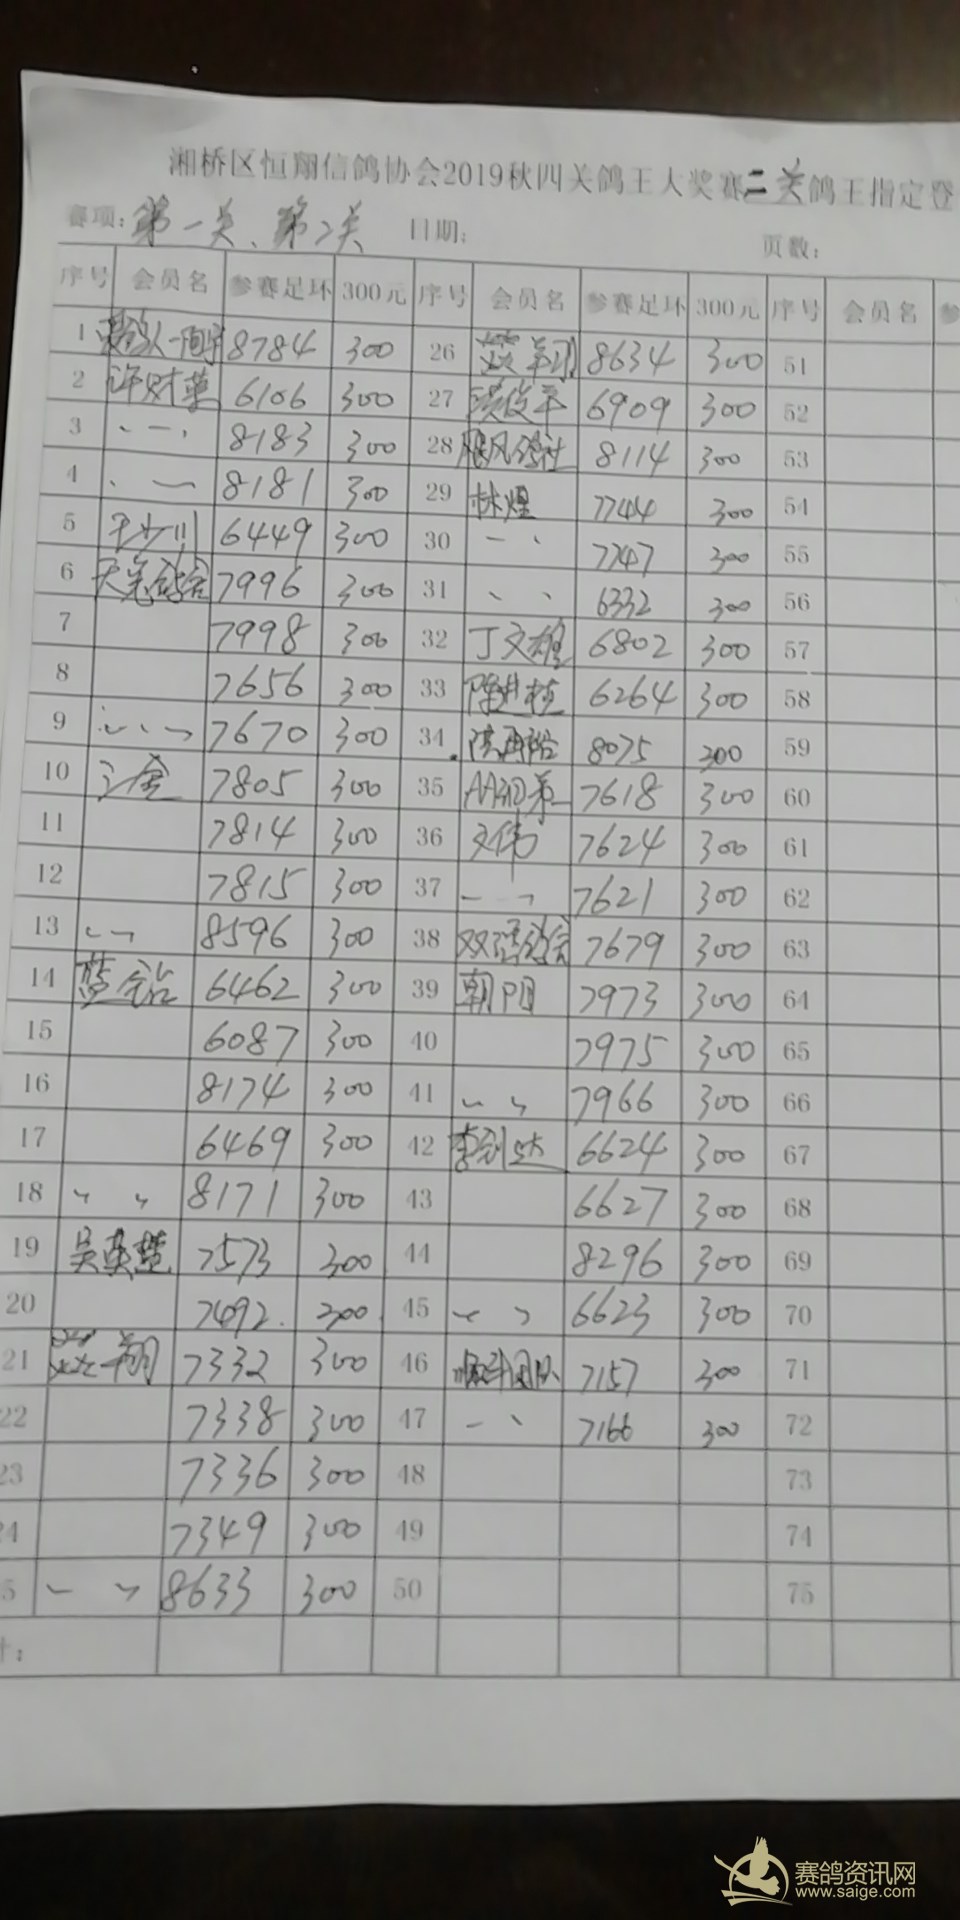 湘桥区恒翔信鸽协会2019秋四关鸽王大奖赛二关鸽王指定登
赛项: 第一关、第2关 日期: 页数:
序号 会员名 参赛足环 300元 序号 会员名 参赛足环 300元 序号 会员名 参
1 8784 300 26 8634 300 51
2 许财革 6106 300 27 6909 300 52
3 、一、 8183 300 28 飓风鸽社 8114 300 53
4 、一 8181 300 29 林煌 7744 300 54
5 王少川 6449 300 30 一、 7747 300 55
6 7996 300 31 、、 6332 300 56
7 7998 300 32 丁文雄 6802 300 57
8 7656 300 33 陈进桂 6264 300 58
9 7670 300 34 8075 300 59
10 7805 300 35 7618 300 60
11 7814 300 36 文伟 7624 300 61
12 7815 300 37 7621 300 62
13 8596 300 38 7679 300 63
14 蓝钻 6462 300 39 朝阳 7973 300 64
15 6087 300 40 7975 300 65
16 8174 300 41 7966 300 66
17 6469 300 42 李剑达 6624 300 67
18 8171 300 43 6627 300 68
19 吴英楚 7573 300 44 8296 300 69
20 7492 300 45 6623 300 70
21 7332 300 46 顺铧团队 7157 300 71
22 7338 300 47 一、 7166 300 72
23 7336 300 48 73
4 7349 300 49 74
5 8633 300 50 75
计:
赛鸽资讯网
www.saige.com